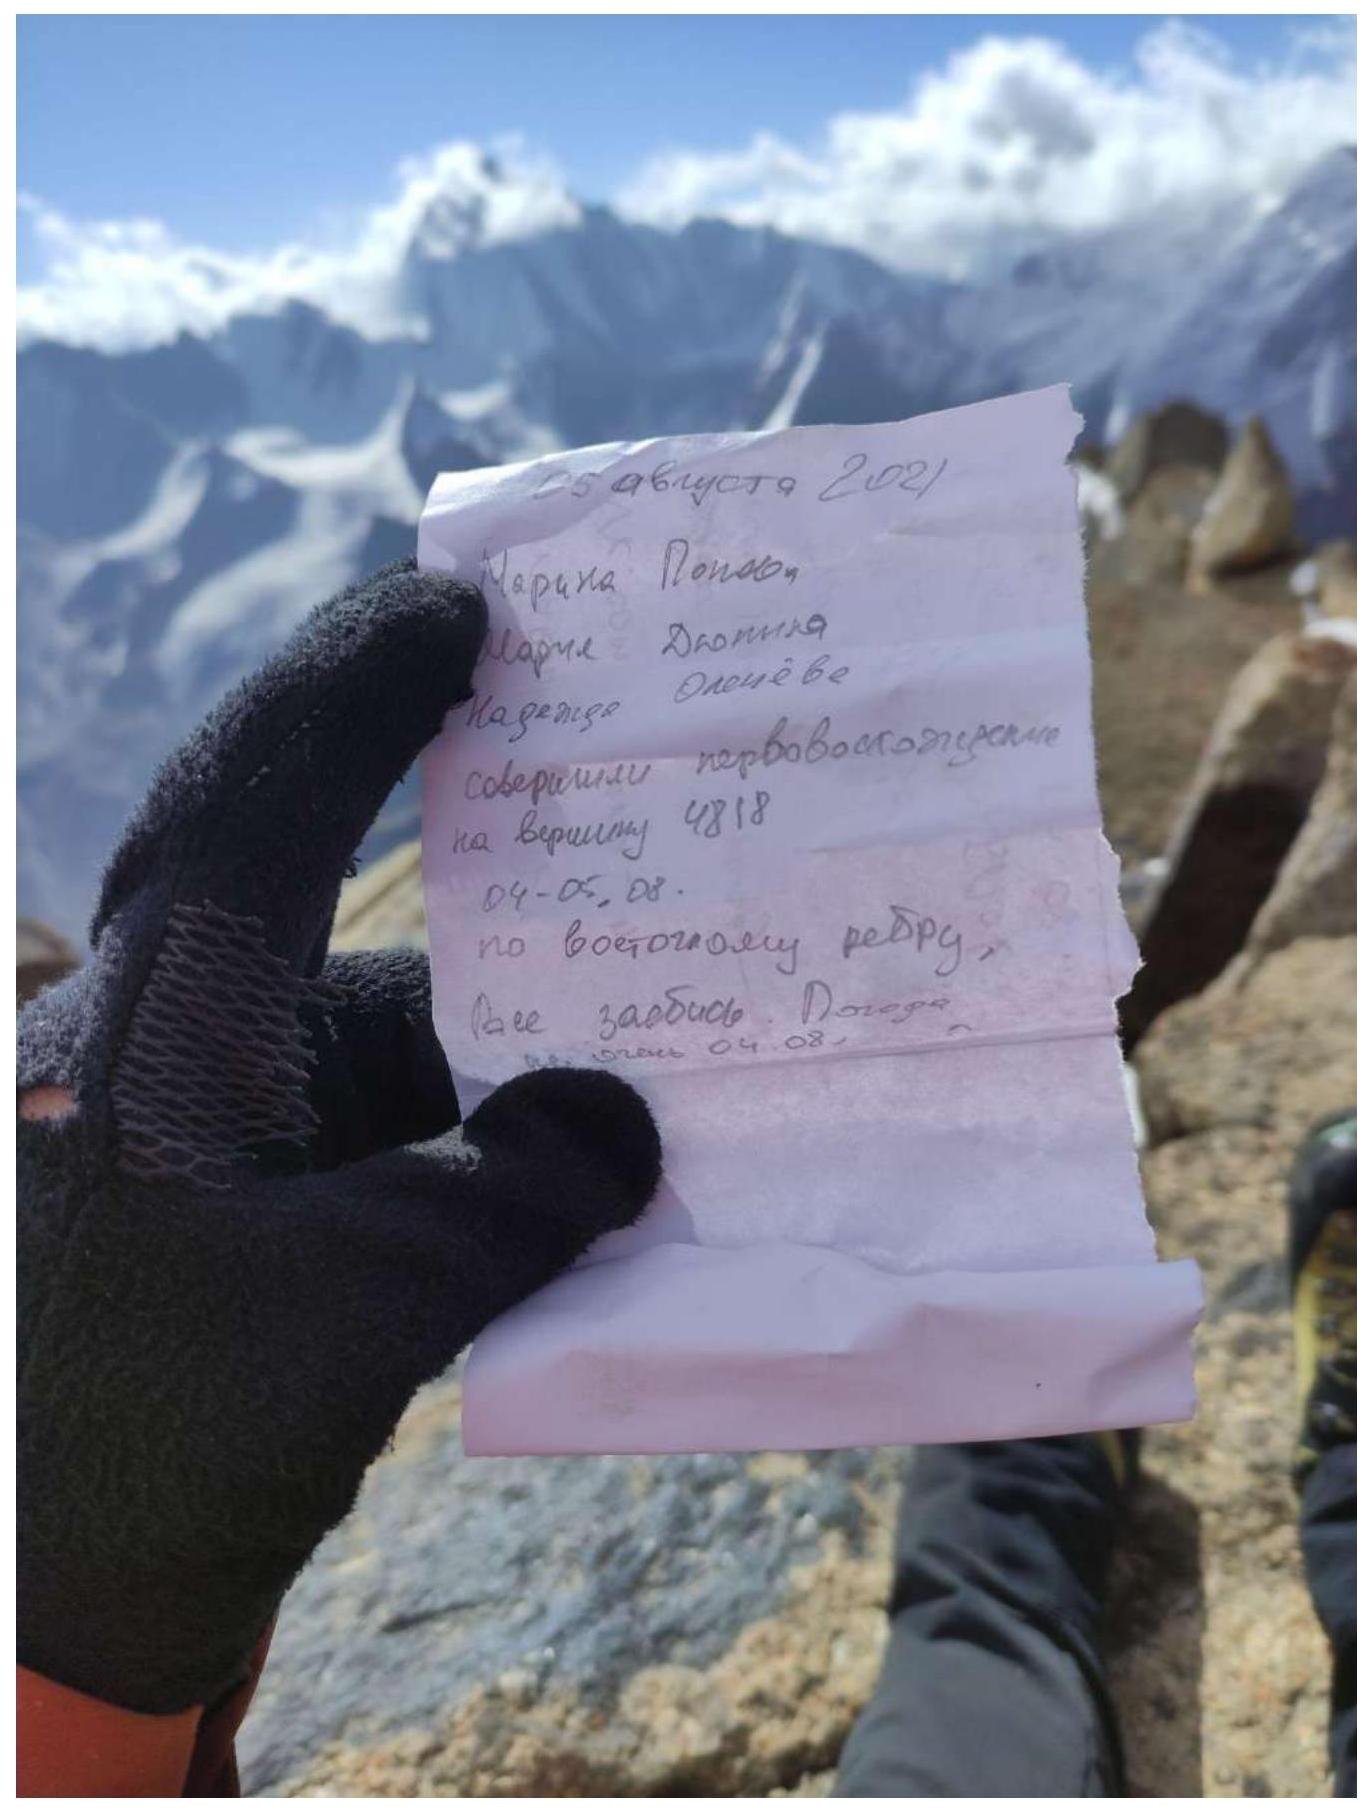 05 августа 2021
Марина Попова
Мария Дюпина
Надежда Оленёва
совершили первовосхождение
на вершину 4818
04-05.08.
по восточному ребру,
Все заебись. Погода
не очень 04.08.